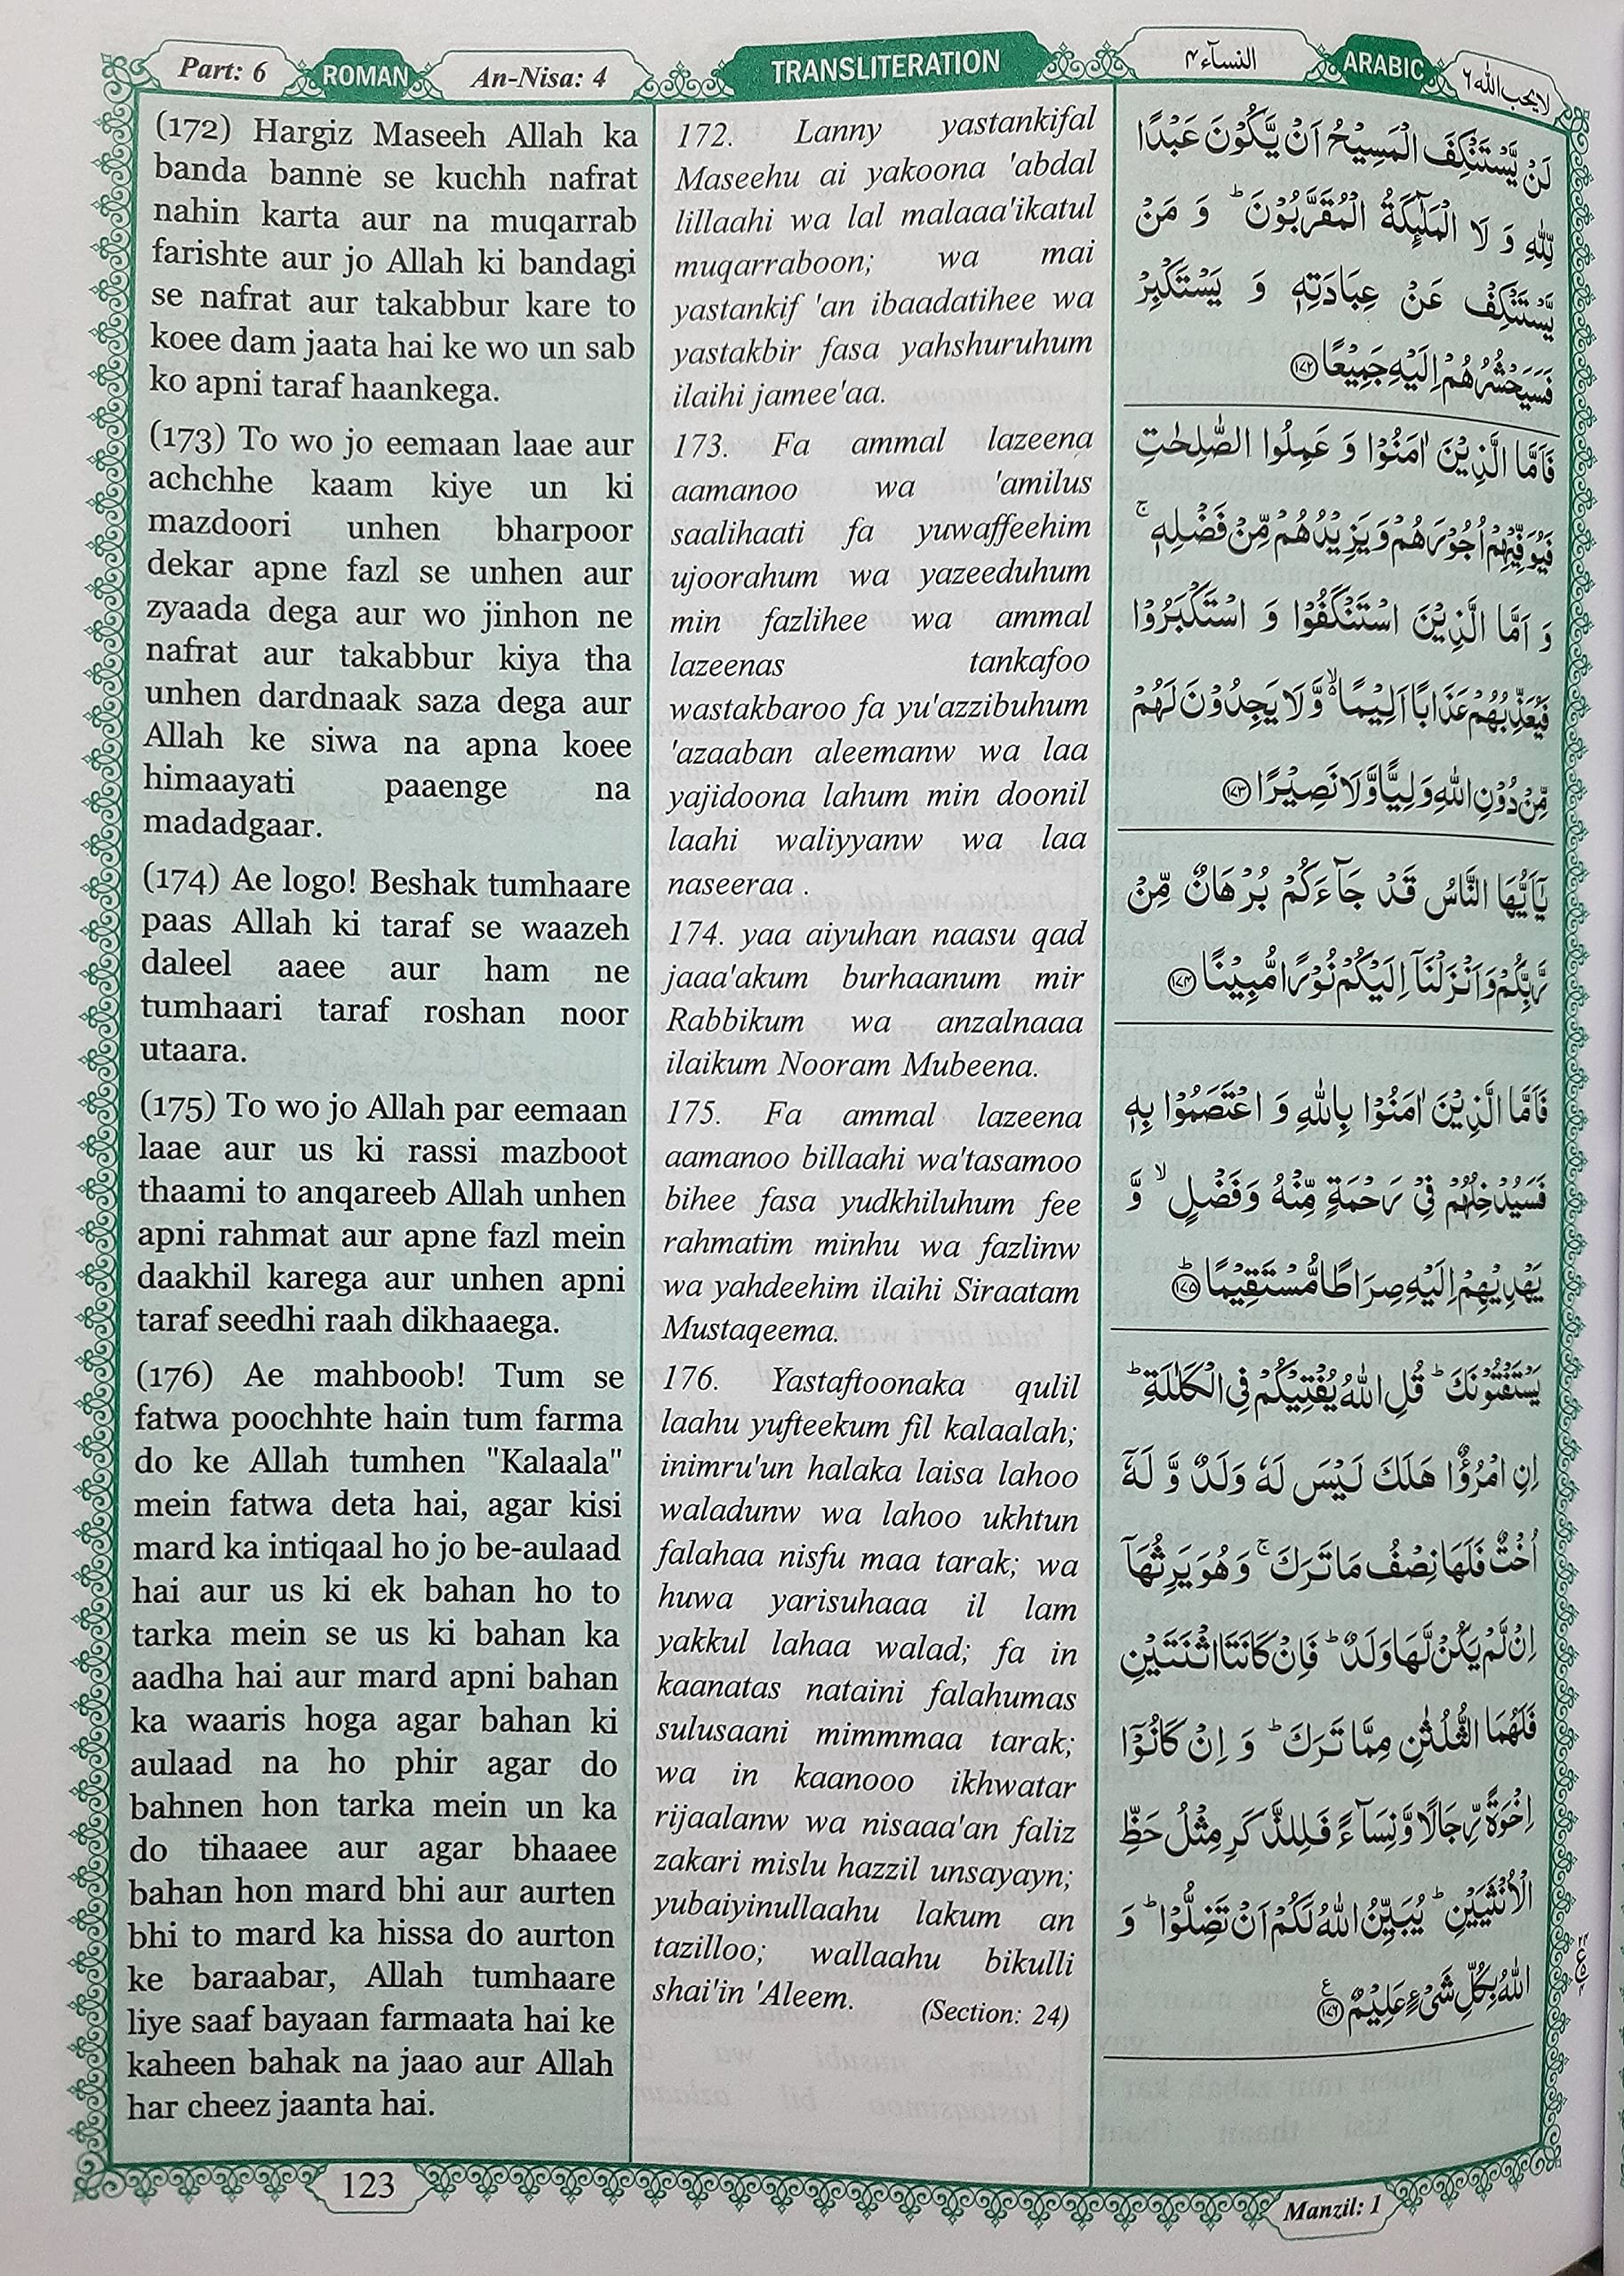 Part: 6
ROMAN
An-Nisa: 4
TRANSLITERATION
النسآء ۴
ARABIC
لا یحب اللہ ۶
(172) Hargiz Maseeh Allah ka
banda banne se kuchh nafrat
nahin karta aur na muqarrab
farishte aur jo Allah ki bandagi
se nafrat aur takabbur kare to
koee dam jaata hai ke wo un sab
ko apni taraf haankega.
(173) To wo jo eemaan laae aur
achchhe kaam kiye un ki
mazdoori unhen bharpoor
dekar apne fazl se unhen aur
zyaada dega aur wo jinhon ne
nafrat aur takabbur kiya tha
unhen dardnaak saza dega aur
Allah ke siwa na apna koee
himaayati paaenge na
madadgaar.
(174) Ae logo! Beshak tumhaare
paas Allah ki taraf se waazeh
daleel aaee aur ham ne
tumhaari taraf roshan noor
utaara.
(175) To wo jo Allah par eemaan
laae aur us ki rassi mazboot
thaami to anqareeb Allah unhen
apni rahmat aur apne fazl mein
daakhil karega aur unhen apni
taraf seedhi raah dikhaaega.
(176) Ae mahboob! Tum se
fatwa poochhte hain tum farma
do ke Allah tumhen "Kalaala"
mein fatwa deta hai, agar kisi
mard ka intiqaal ho jo be-aulaad
hai aur us ki ek bahan ho to
tarka mein se us ki bahan ka
aadha hai aur mard apni bahan
ka waaris hoga agar bahan ki
aulaad na ho phir agar do
bahnen hon tarka mein un ka
do tihaaee aur agar bhaaee
bahan hon mard bhi aur aurten
bhi to mard ka hissa do aurton
ke baraabar, Allah tumhaare
liye saaf bayaan farmaata hai ke
kaheen bahak na jaao aur Allah
har cheez jaanta hai.
172. Lanny yastankifal
Maseehu ai yakoona 'abdal
lillaahi wa lal malaaa'ikatul
muqarraboon; wa mai
yastankif 'an ibaadatihee wa
yastakbir fasa yahshuruhum
ilaihi jamee'aa.
173. Fa ammal lazeena
aamanoo wa 'amilus
saalihaati fa yuwaffeehim
ujoorahum wa yazeeduhum
min fazlihee wa ammal
lazeenas tankafoo
wastakbaroo fa yu'azzibuhum
'azaaban aleemanw wa laa
yajidoona lahum min doonil
laahi waliyyanw wa laa
naseeraa .
174. yaa aiyuhan naasu qad
jaaa'akum burhaanum mir
Rabbikum wa anzalnaaa
ilaikum Nooram Mubeena.
175. Fa ammal lazeena
aamanoo billaahi wa'tasamoo
bihee fasa yudkhiluhum fee
rahmatim minhu wa fazlinw
wa yahdeehim ilaihi Siraatam
Mustaqeema.
176. Yastaftoonaka qulil
laahu yufteekum fil kalaalah;
inimru'un halaka laisa lahoo
waladunw wa lahoo ukhtun
falahaa nisfu maa tarak; wa
huwa yarisuhaaa il lam
yakkul lahaa walad; fa in
kaanatas nataini falahumas
sulusaani mimmmaa tarak;
wa in kaanooo ikhwatar
rijaalanw wa nisaaa'an faliz
zakari mislu hazzil unsayayn;
yubaiyinullaahu lakum an
tazilloo; wallaahu bikulli
shai'in 'Aleem.
(Section: 24)
لَنْ یَّسْتَنْكِفَ الْمَسِیْحُ اَنْ یَّكُوْنَ عَبْدًا
لِّلّٰهِ وَ لَا الْمَلٰٓىِٕكَةُ الْمُقَرَّبُوْنَؕ وَ مَنْ
یَّسْتَنْكِفْ عَنْ عِبَادَتِهٖ وَ یَسْتَكْبِرْ
فَسَیَحْشُرُهُمْ اِلَیْهِ جَمِیْعًا ۝۱۷۲
فَاَمَّا الَّذِیْنَ اٰمَنُوْا وَ عَمِلُوا الصّٰلِحٰتِ
فَیُوَفِّیْهِمْ اُجُوْرَهُمْ وَ یَزِیْدُهُمْ مِّنْ فَضْلِهٖۚ
وَ اَمَّا الَّذِیْنَ اسْتَنْكَفُوْا وَ اسْتَكْبَرُوْا
فَیُعَذِّبُهُمْ عَذَابًا اَلِیْمًا ۙ۬ وَّ لَا یَجِدُوْنَ لَهُمْ
مِّنْ دُوْنِ اللّٰهِ وَلِیًّا وَّ لَا نَصِیْرًا ۝۱۷۳
یٰۤاَیُّهَا النَّاسُ قَدْ جَآءَكُمْ بُرْهَانٌ مِّنْ
رَّبِّكُمْ وَ اَنْزَلْنَاۤ اِلَیْكُمْ نُوْرًا مُّبِیْنًا ۝۱۷۴
فَاَمَّا الَّذِیْنَ اٰمَنُوْا بِاللّٰهِ وَ اعْتَصَمُوْا بِهٖ
فَسَیُدْخِلُهُمْ فِیْ رَحْمَةٍ مِّنْهُ وَ فَضْلٍۙ وَّ
یَهْدِیْهِمْ اِلَیْهِ صِرَاطًا مُّسْتَقِیْمًاؕ ۝۱۷۵
یَسْتَفْتُوْنَكَؕ قُلِ اللّٰهُ یُفْتِیْكُمْ فِی الْكَلٰلَةِؕ
اِنِ امْرُؤٌا هَلَكَ لَیْسَ لَهٗ وَلَدٌ وَّ لَهٗۤ
اُخْتٌ فَلَهَا نِصْفُ مَا تَرَكَۚ وَ هُوَ یَرِثُهَاۤ
اِنْ لَّمْ یَكُنْ لَّهَا وَلَدٌؕ فَاِنْ كَانَتَا اثْنَتَیْنِ
فَلَهُمَا الثُّلُثٰنِ مِمَّا تَرَكَؕ وَ اِنْ كَانُوْۤا
اِخْوَةً رِّجَالًا وَّ نِسَآءً فَلِلذَّكَرِ مِثْلُ حَظِّ
الْاُنْثَیَیْنِؕ یُبَیِّنُ اللّٰهُ لَكُمْ اَنْ تَضِلُّوْاؕ وَ
اللّٰهُ بِكُلِّ شَیْءٍ عَلِیْمٌ ۝۱۷۶
123
Manzil: 1